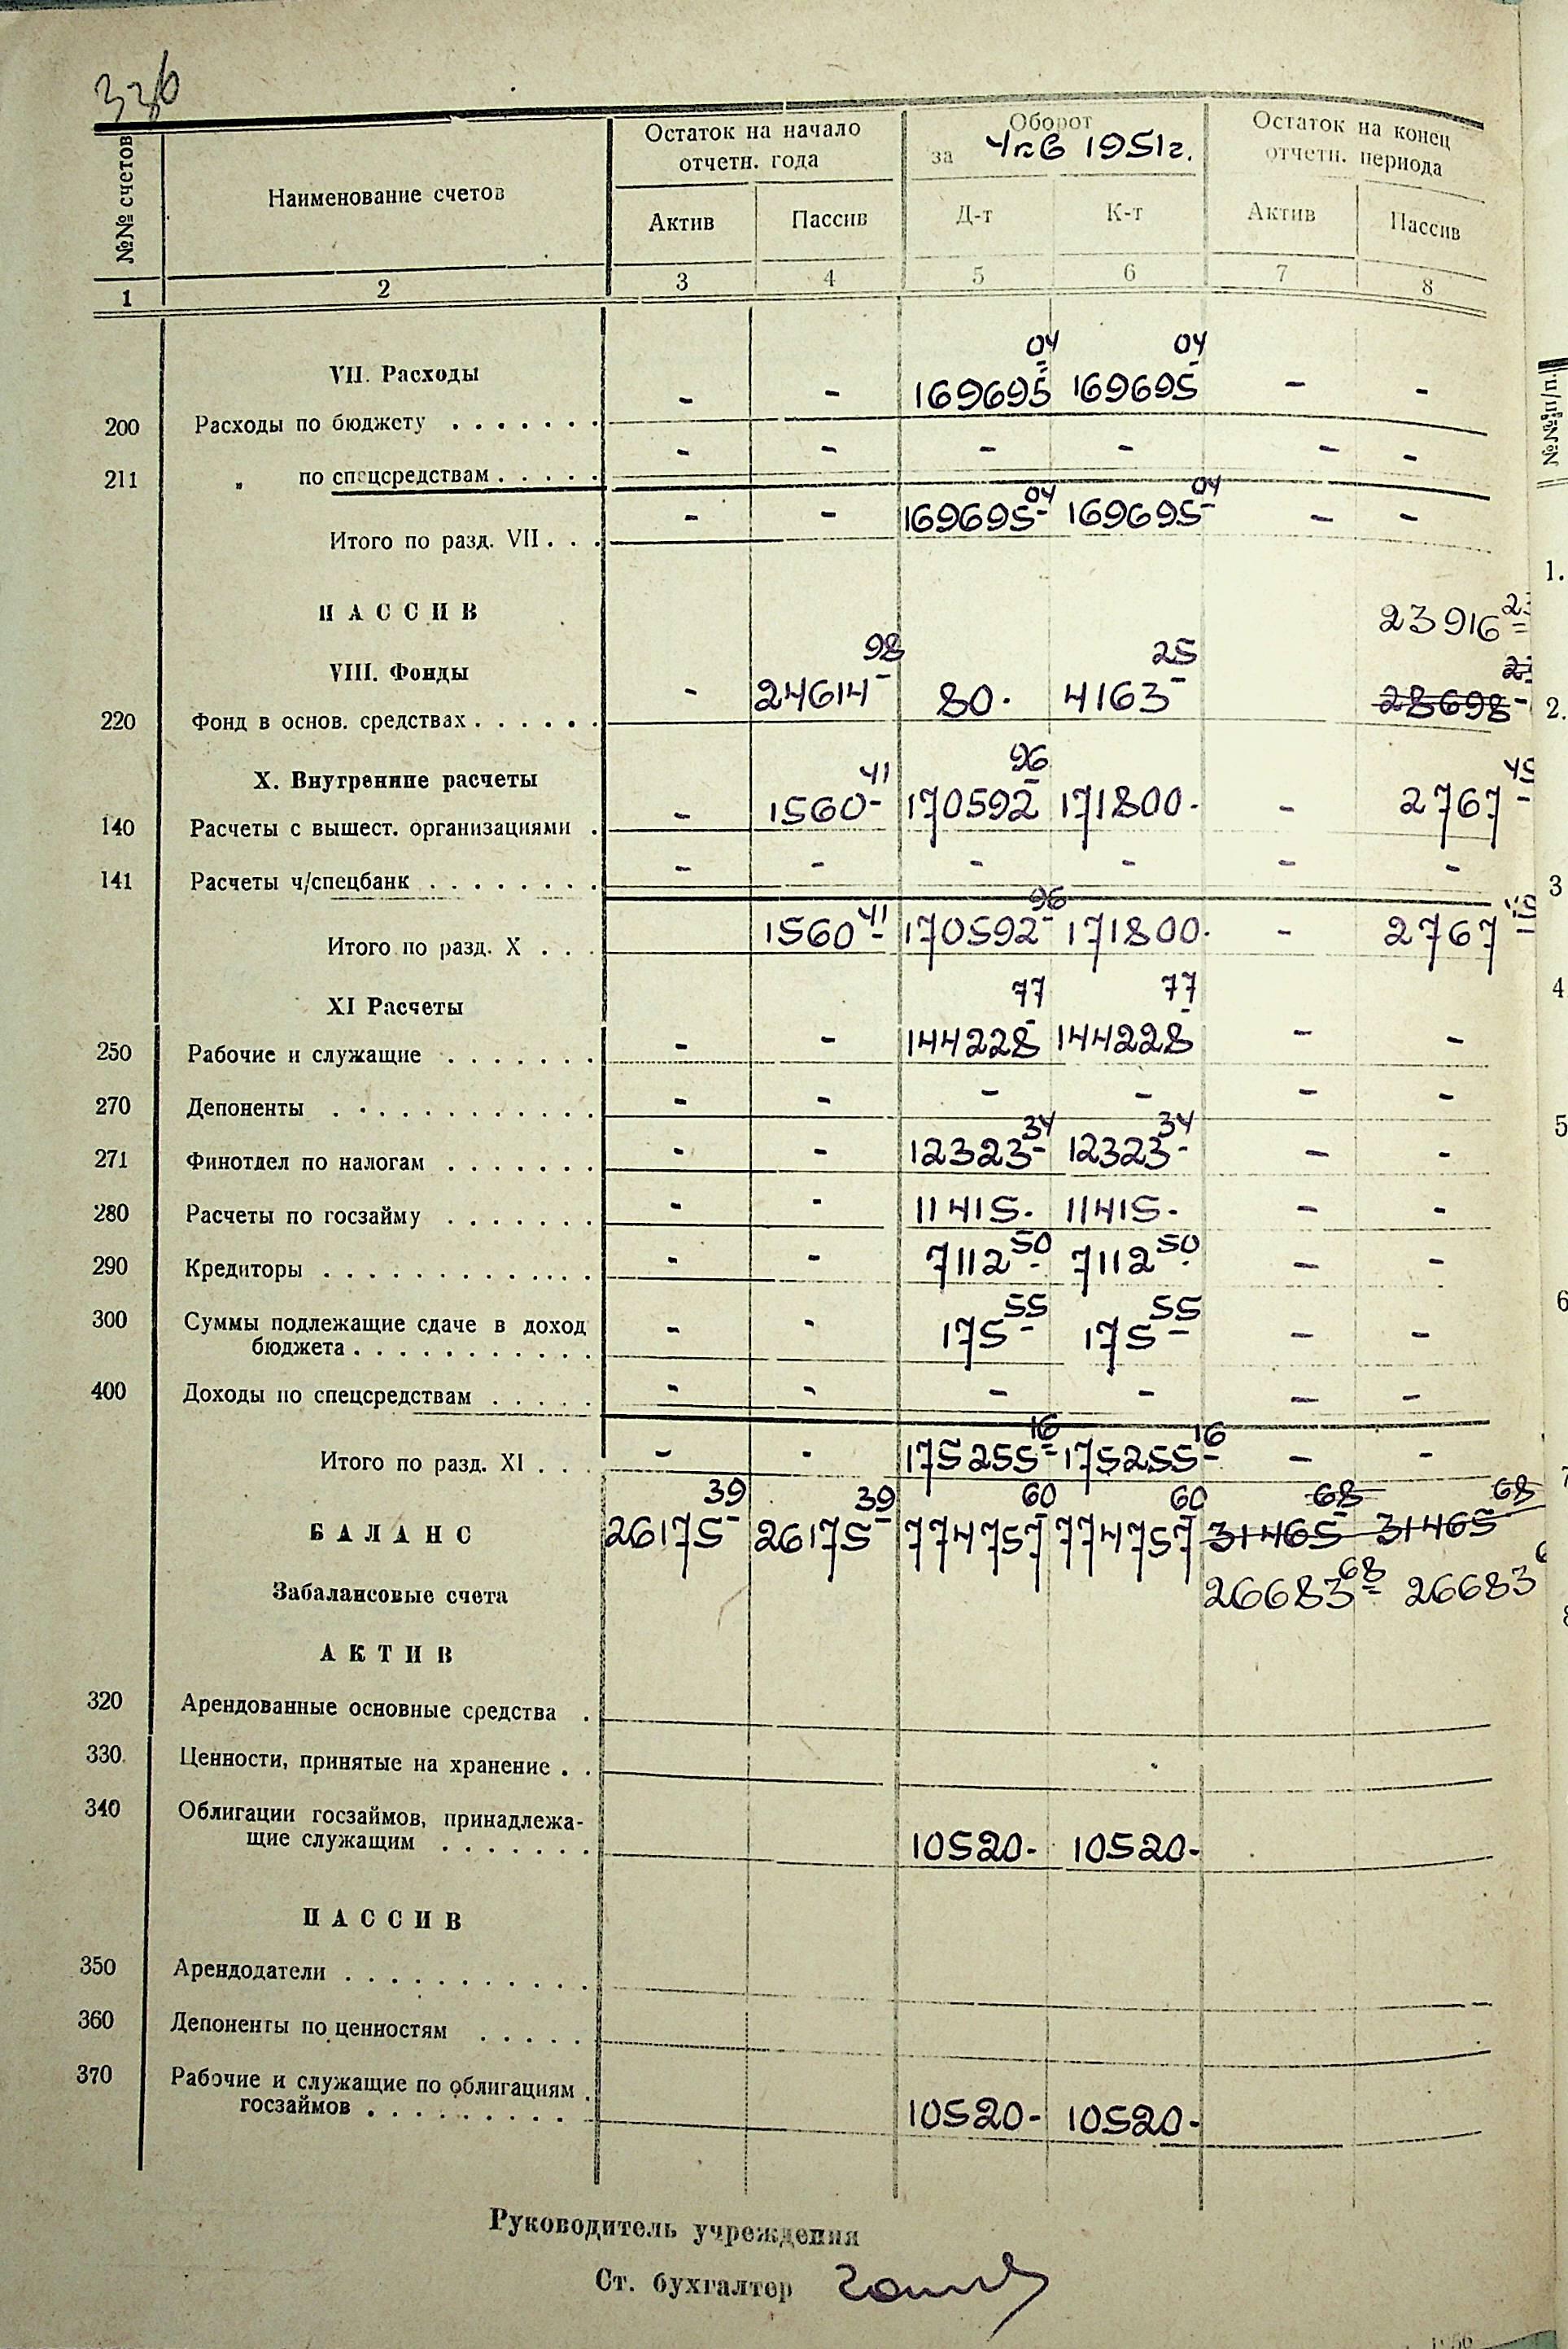 336
№№ счетов Наименование счетов Остаток на начало отчетн. года Оборот за 4 кв 1951г. Остаток на конец отчетн. периода
Актив Пассив Д-т К-т Актив Пассив
1 2 3 4 5 6 7 8
VII. Расходы
200 Расходы по бюджету . . . . . . . - - 169695 04 169695 04 - -
211 „ по спецсредствам . . . . . - - - - - -
Итого по разд. VII . . . - - 169695 04 169695 04 - -
ПАССИВ 23916
VIII. Фонды
220 Фонд в основ. средствах . . . . . . - 24614 98 80. 4163 25 28698
X. Внутренние расчеты
140 Расчеты с вышест. организациями . - 1560 41 170592 96 171800. - 2767
141 Расчеты ч/спецбанк . . . . . . . . - - - - - -
Итого по разд. X . . . 1560 41 170592 96 171800. - 2767
XI Расчеты
250 Рабочие и служащие . . . . . . . - - 144228 77 144228 77 - -
270 Депоненты . . . . . . . . . . . . - - - - - -
271 Финотдел по налогам . . . . . . . - - 12323 34 12323 34 - -
280 Расчеты по госзайму . . . . . . . - - 11415. 11415. - -
290 Кредиторы . . . . . . . . . . . . . - - 7112 50 7112 50 - -
300 Суммы подлежащие сдаче в доход
бюджета . . . . . . . . . . . - - 175 55 175 55 - -
400 Доходы по спецсредствам . . . . . - - - - - -
Итого по разд. XI . . . - - 175255 16 175255 16 - -
БАЛАНС 26175 39 26175 39 774757 60 774757 60 31465 68 31465 68
Забалансовые счета 26683 68 26683
АКТИВ
320 Арендованные основные средства .
330 Ценности, принятые на хранение . .
340 Облигации госзаймов, принадлежа-
щие служащим . . . . . . . 10520- 10520-
ПАССИВ
350 Арендодатели . . . . . . . . . . .
360 Депоненты по ценностям . . . . .
370 Рабочие и служащие по облигациям .
госзаймов . . . . . . . . . 10520- 10520-
Руководитель учреждения
Ст. бухгалтер
№№ п/п.
1.
2.
3
4
5
6